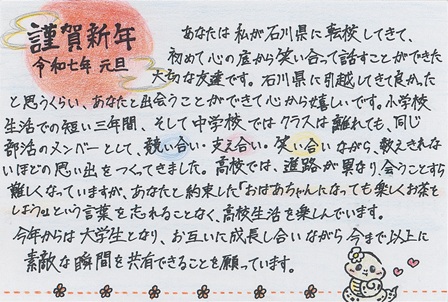 謹賀新年
令和七年 元旦
あなたは私が石川県に転校してきて、
初めて心の底から笑い合って話すことができた
大切な友達です。石川県に引越してきて良かった
と思うくらい、あなたと出会うことができて心から嬉しいです。小学校
生活での短い三年間、そして中学校ではクラスは離れても、同じ
部活のメンバーとして、競い合い・支え合い・笑い合いながら、数えきれな
いほどの思い出をつくってきました。高校では、進路が異なり、会うことすら
難しくなっていますが、あなたと約束した「おばあちゃんになっても楽しくお茶を
しよう」という言葉を忘れることなく、高校生活を楽しんでいます。
今年からは大学生となり、お互いに成長し合いながら今まで以上に
素敵な瞬間を共有できることを願っています。